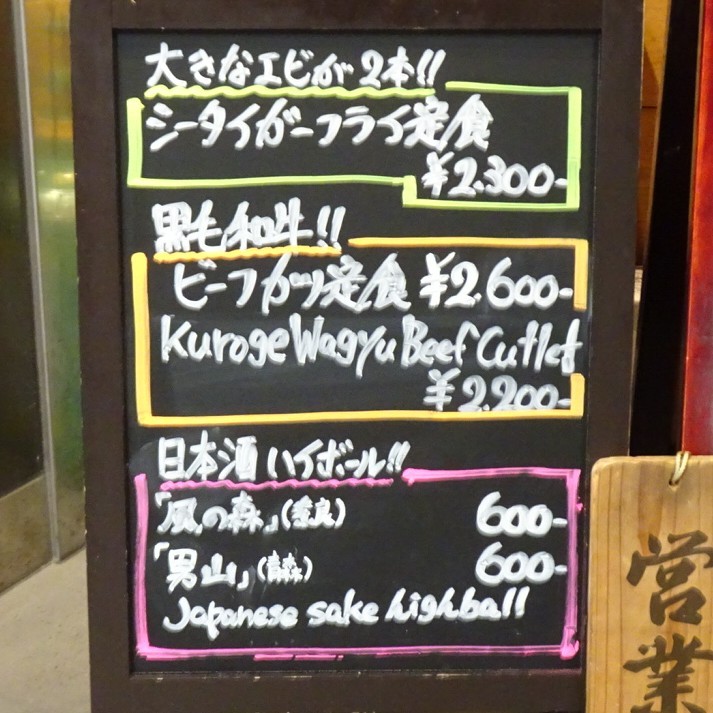 大きなエビが2本!!
シータイガーフライ定食
¥2.300-
黒毛和牛!!
ビーフカツ定食 ¥2.600-
Kuroge Wagyu Beef Cutlet
¥2.200-
日本酒ハイボール!!
「風の森」(奈良) 600-
「男山」(青森) 600-
Japanese sake highball!
営業